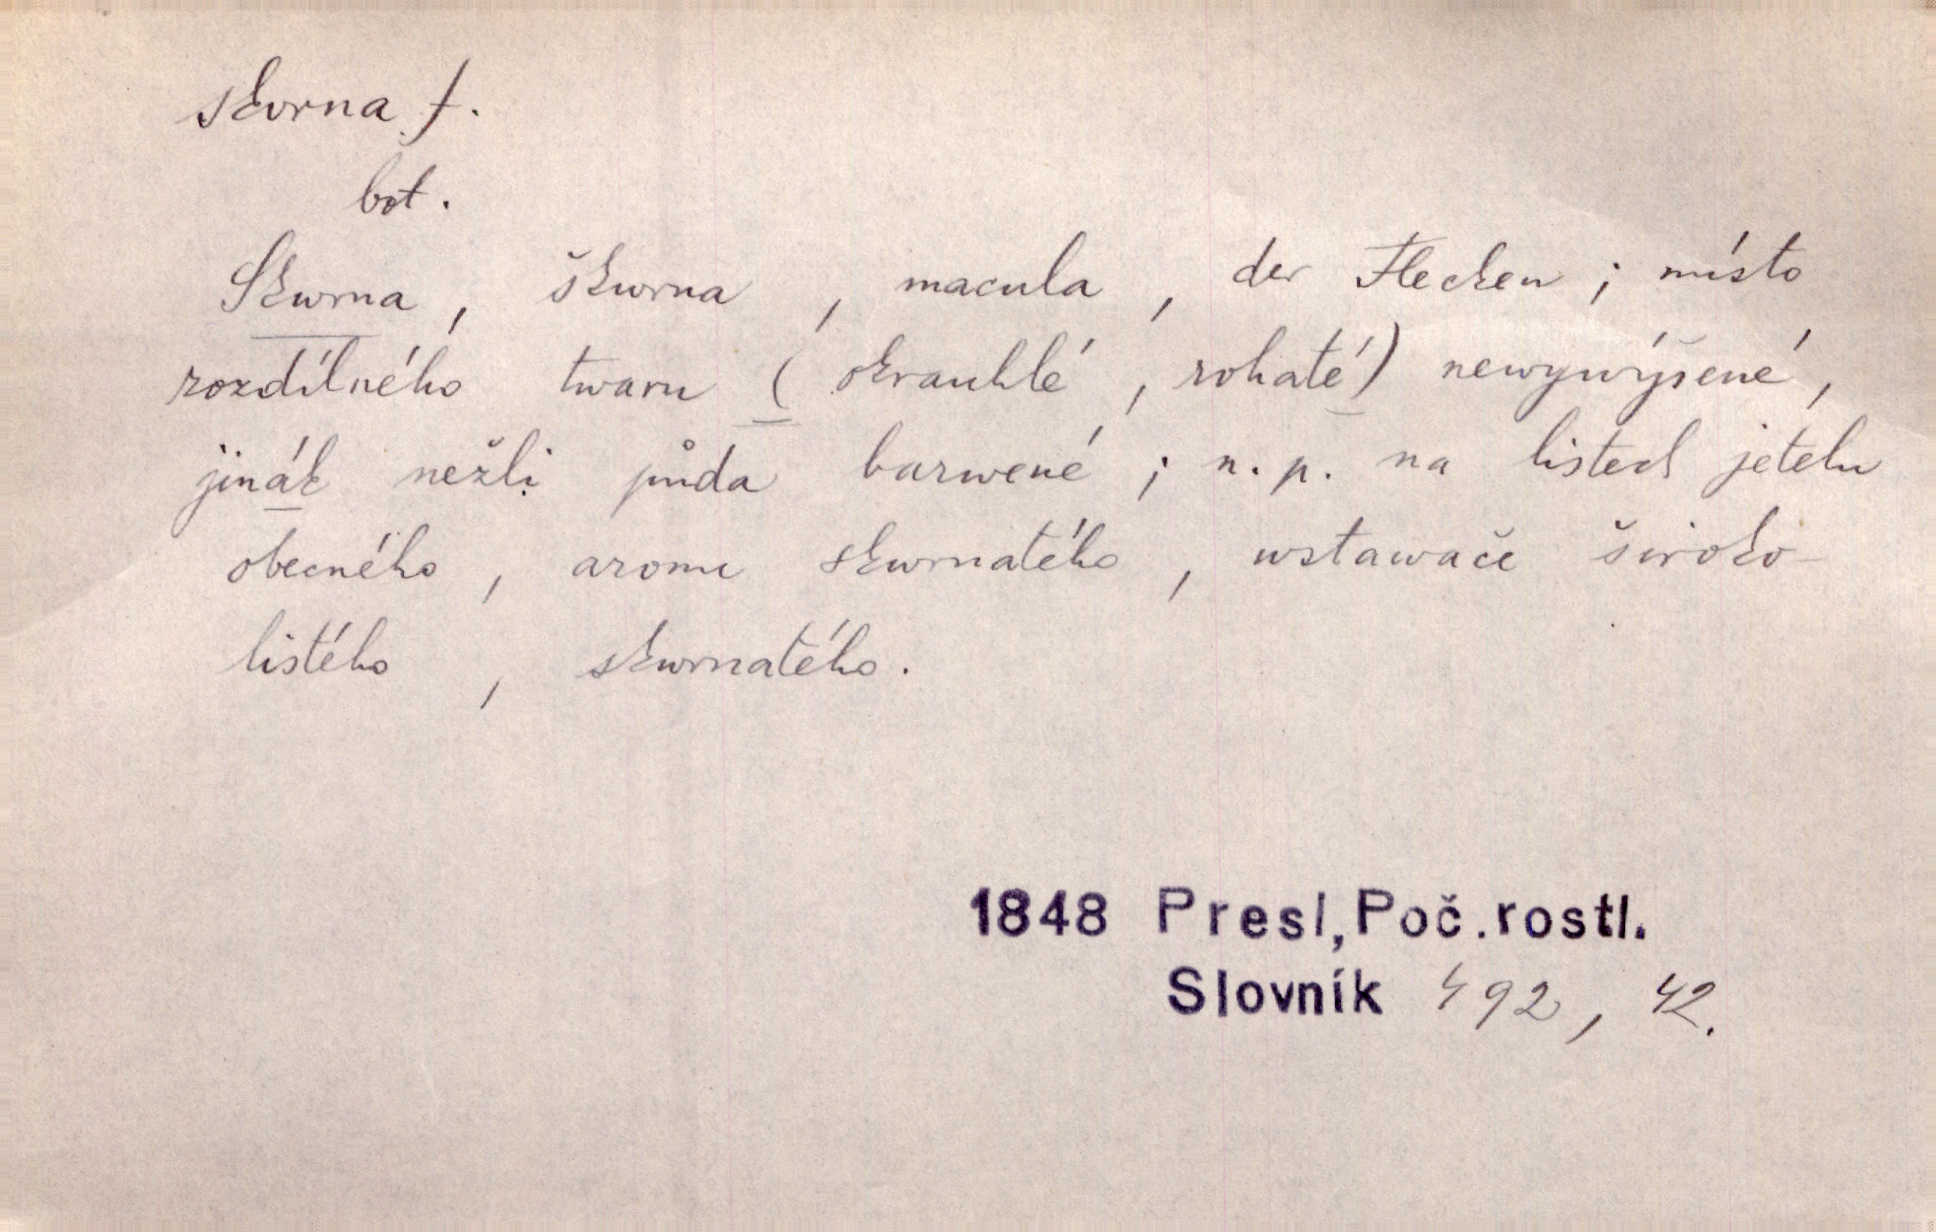 skvrna f.
bot.
Skwrna, škwrna, macula, der Flecken; místo
rozdílného twaru (okrauhlé, rohaté) newywýšené,
jinák nežli půda barwené; n. p. na listech jetelu
obecného, aronu skwrnatého, wstawače široko-
listého, skwrnatého.
1848 Presl, Poč. rostl.
Slovník 492, 42.